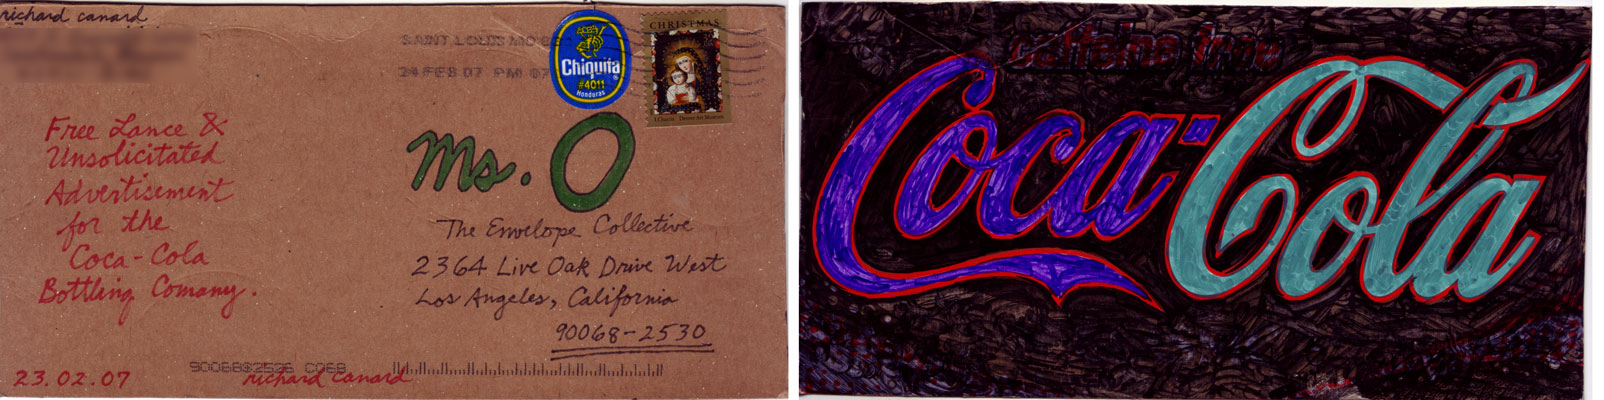 richard canard
SAINT LOUIS MO
24 FEB 07 PM 07
Chiquita
#4011
Honduras
CHRISTMAS
Free Lance &
Unsolicitated
Advertisement
for the
Coca-Cola
Bottling Comany.
Ms. O
The Envelope Collective
2364 Live Oak Drive West
Los Angeles, California
90068-2530
23.02.07
richard canard
caffeine free
Coca-Cola